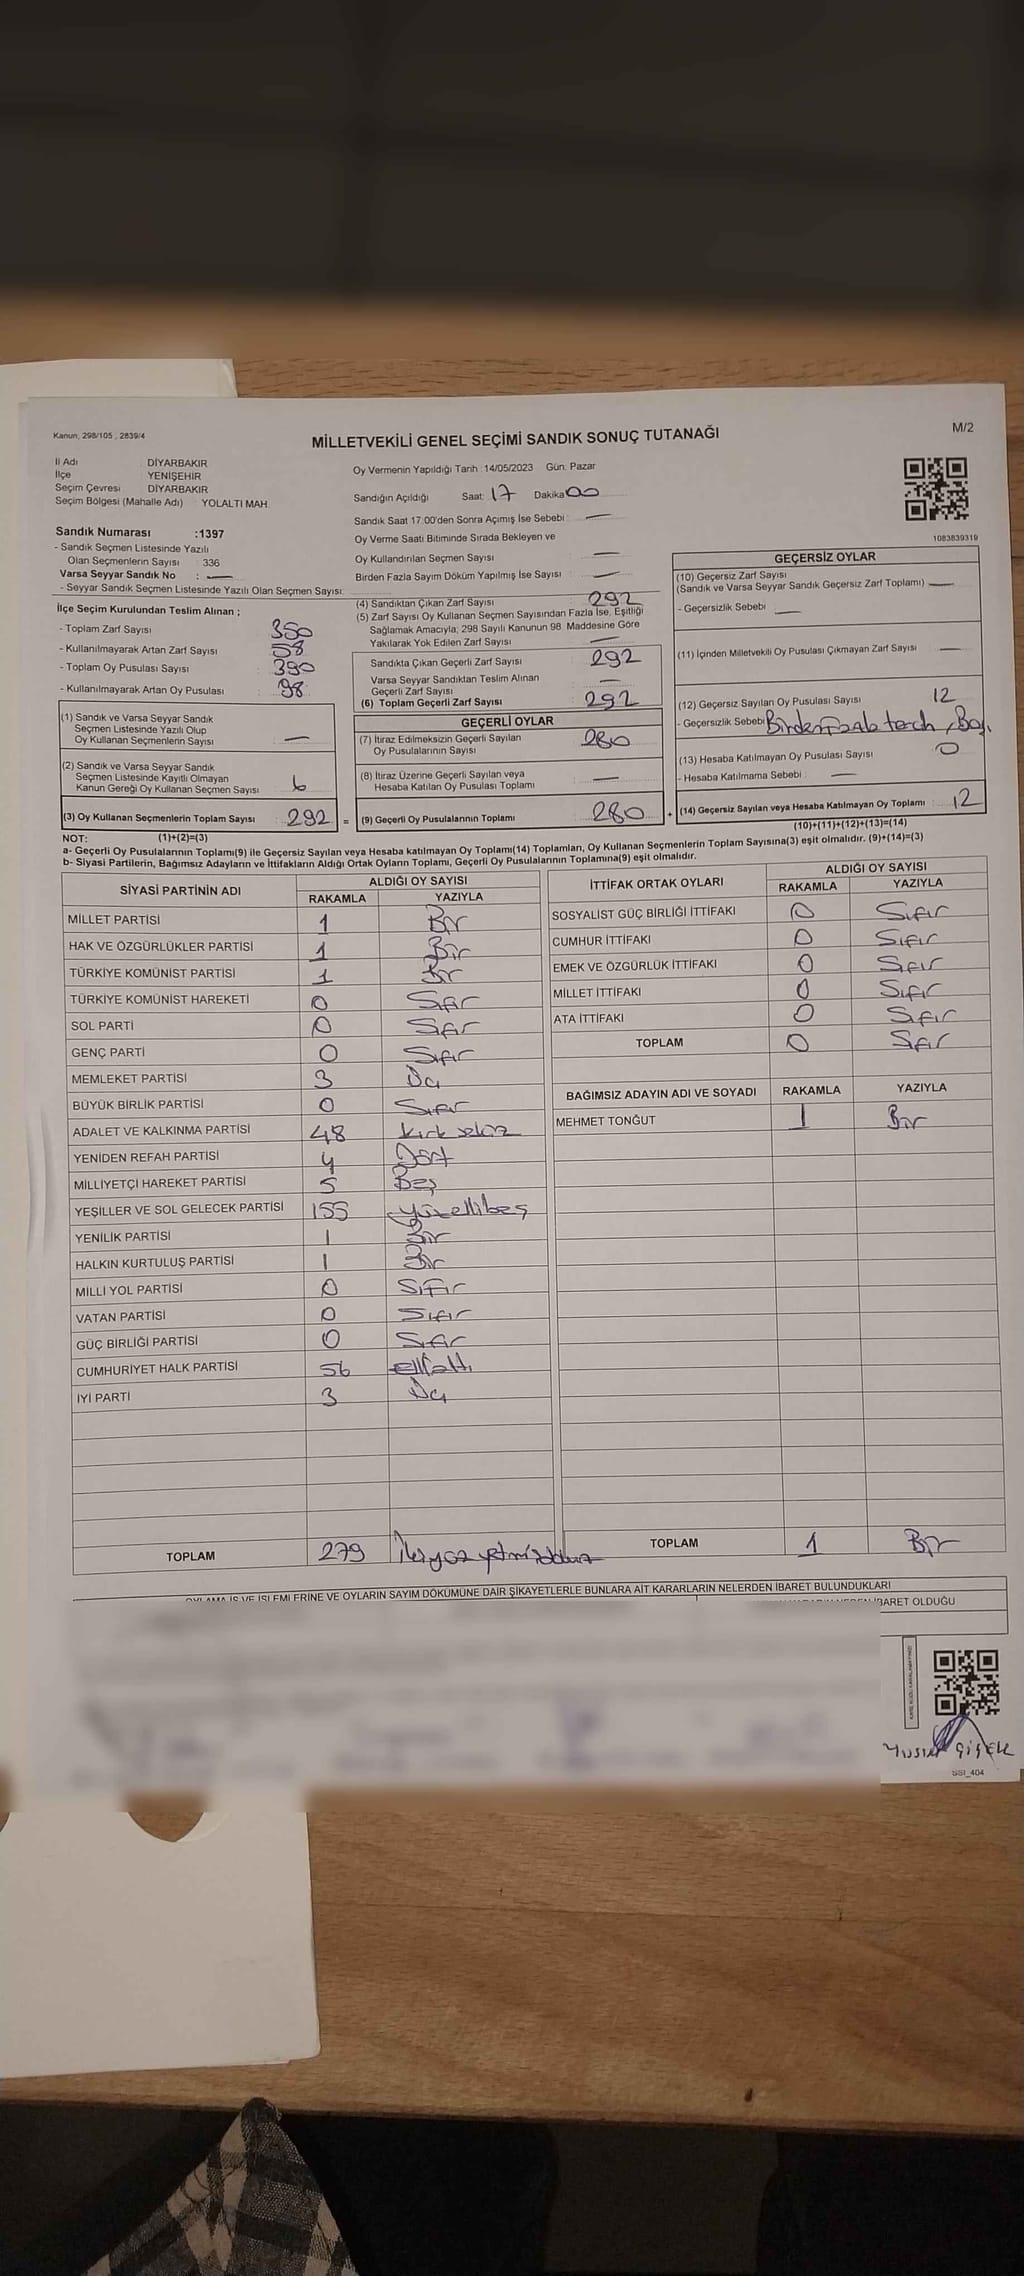 Kanun, 298/105 , 2839/4
MİLLETVEKİLİ GENEL SEÇİMİ SANDIK SONUÇ TUTANAĞI
M/2
İl Adı : DİYARBAKIR
İlçe : YENİŞEHİR
Seçim Çevresi : DİYARBAKIR
Seçim Bölgesi (Mahalle Adı) YOLALTI MAH.
Sandık Numarası :1397
- Sandık Seçmen Listesinde Yazılı
Olan Seçmenlerin Sayısı : 336
Varsa Seyyar Sandık No : —
- Seyyar Sandık Seçmen Listesinde Yazılı Olan Seçmen Sayısı:
Oy Vermenin Yapıldığı Tarih :14/05/2023 Gün: Pazar
Sandığın Açıldığı Saat: 17 Dakika 00
Sandık Saat 17:00'den Sonra Açımış İse Sebebi : —
Oy Verme Saati Bitiminde Sırada Bekleyen ve
Oy Kullandırılan Seçmen Sayısı —
Birden Fazla Sayım Döküm Yapılmış İse Sayısı : —
1083839319
İlçe Seçim Kurulundan Teslim Alınan ;
- Toplam Zarf Sayısı : 350
- Kullanılmayarak Artan Zarf Sayısı : 58
- Toplam Oy Pusulası Sayısı : 390
- Kullanılmayarak Artan Oy Pusulası : 98
(1) Sandık ve Varsa Seyyar Sandık
Seçmen Listesinde Yazılı Olup
Oy Kullanan Seçmenlerin Sayısı : —
(2) Sandık ve Varsa Seyyar Sandık
Seçmen Listesinde Kayıtlı Olmayan
Kanun Gereği Oy Kullanan Seçmen Sayısı : 6
(3) Oy Kullanan Seçmenlerin Toplam Sayısı : 292 =
(4) Sandıktan Çıkan Zarf Sayısı : 292
(5) Zarf Sayısı Oy Kullanan Seçmen Sayısından Fazla İse, Eşitliği
Sağlamak Amacıyla; 298 Sayılı Kanunun 98. Maddesine Göre
Yakılarak Yok Edilen Zarf Sayısı —
Sandıkta Çıkan Geçerli Zarf Sayısı : 292
Varsa Seyyar Sandıktan Teslim Alınan
Geçerli Zarf Sayısı : —
(6) Toplam Geçerli Zarf Sayısı : 292
GEÇERLİ OYLAR
(7) İtiraz Edilmeksizin Geçerli Sayılan
Oy Pusulalarının Sayısı : 280
(8) İtiraz Üzerine Geçerli Sayılan veya
Hesaba Katılan Oy Pusulası Toplamı : —
(9) Geçerli Oy Pusulalarının Toplamı : 280 +
GEÇERSİZ OYLAR
(10) Geçersiz Zarf Sayısı
(Sandık ve Varsa Seyyar Sandık Geçersiz Zarf Toplamı) —
- Geçersizlik Sebebi : —
(11) İçinden Milletvekili Oy Pusulası Çıkmayan Zarf Sayısı : —
(12) Geçersiz Sayılan Oy Pusulası Sayısı : 12
- Geçersizlik Sebebi Birden Fazla tercih, Boş.
(13) Hesaba Katılmayan Oy Pusulası Sayısı : 0
- Hesaba Katılmama Sebebi : —
(14) Geçersiz Sayılan veya Hesaba Katılmayan Oy Toplamı : 12
NOT: (1)+(2)=(3)
(10)+(11)+(12)+(13)=(14)
a- Geçerli Oy Pusulalarının Toplamı(9) ile Geçersiz Sayılan veya Hesaba katılmayan Oy Toplamı(14) Toplamları, Oy Kullanan Seçmenlerin Toplam Sayısına(3) eşit olmalıdır. (9)+(14)=(3)
b- Siyasi Partilerin, Bağımsız Adayların ve İttifakların Aldığı Ortak Oyların Toplamı, Geçerli Oy Pusulalarının Toplamına(9) eşit olmalıdır.
SİYASİ PARTİNİN ADI ALDIĞI OY SAYISI
RAKAMLA YAZIYLA
MİLLET PARTİSİ 1 Bir
HAK VE ÖZGÜRLÜKLER PARTİSİ 1 Bir
TÜRKİYE KOMÜNİST PARTİSİ 1 Bir
TÜRKİYE KOMÜNİST HAREKETİ 0 Sıfır
SOL PARTİ 0 Sıfır
GENÇ PARTİ 0 Sıfır
MEMLEKET PARTİSİ 3 Üç
BÜYÜK BİRLİK PARTİSİ 0 Sıfır
ADALET VE KALKINMA PARTİSİ 48 kırk sekiz
YENİDEN REFAH PARTİSİ 4 Dört
MİLLİYETÇİ HAREKET PARTİSİ 5 Beş
YEŞİLLER VE SOL GELECEK PARTİSİ 155 yüzellibeş
YENİLİK PARTİSİ 1 Bir
HALKIN KURTULUŞ PARTİSİ 1 Bir
MİLLİ YOL PARTİSİ 0 Sıfır
VATAN PARTİSİ 0 Sıfır
GÜÇ BİRLİĞİ PARTİSİ 0 Sıfır
CUMHURİYET HALK PARTİSİ 56 ellialtı
İYİ PARTİ 3 Üç
TOPLAM 279 İkiyüz yetmişdokuz
İTTİFAK ORTAK OYLARI ALDIĞI OY SAYISI
RAKAMLA YAZIYLA
SOSYALİST GÜÇ BİRLİĞİ İTTİFAKI 0 Sıfır
CUMHUR İTTİFAKI 0 Sıfır
EMEK VE ÖZGÜRLÜK İTTİFAKI 0 Sıfır
MİLLET İTTİFAKI 0 Sıfır
ATA İTTİFAKI 0 Sıfır
TOPLAM 0 Sıfır
BAĞIMSIZ ADAYIN ADI VE SOYADI RAKAMLA YAZIYLA
MEHMET TONĞUT 1 Bir
TOPLAM 1 Bir
OYLAMA İŞ VE İŞLEMLERİNE VE OYLARIN SAYIM DÖKÜMÜNE DAİR ŞİKAYETLERLE BUNLARA AİT KARARLARIN NELERDEN İBARET BULUNDUKLARI
İBARET OLDUĞU
Yusuf ÇİÇEK
SSI_404